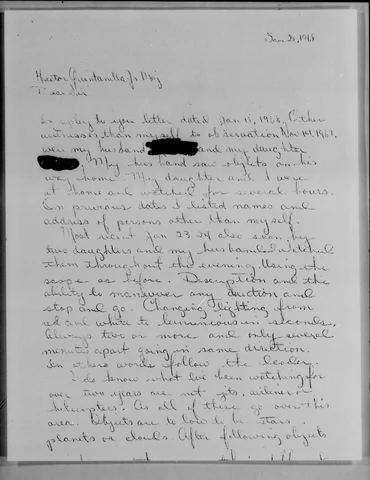 Jan 25, 1968
Hector Quintanilla Jr Maj
Dear Sir
In reply to you letter dated Jan 15, 1968. Other
witness's than myself to observation Nov 14, 1967,
were my husband and my daughter
My husband saw objects on his
way home. My daughter and I were
at home and watched for several hours.
On previous dates I listed names and
address of persons other than myself.
Most recent Jan 23 24 also seen by
two daughters and my husband. I watched
them throughout the evening. Using the
scope as before. Discription and the
ability to maneuver any direction and
stop and go. Changing lighting from
red and white to luminous in seconds.
Always two or more and only several
minutes apart going in same direction.
In others words follow the leader.
I do know what I've been watching for
over two years are not jets, airliner or
helicopters. As all if these go over this
area. Objects are to low to be stars,
planets or clouds. After following objects